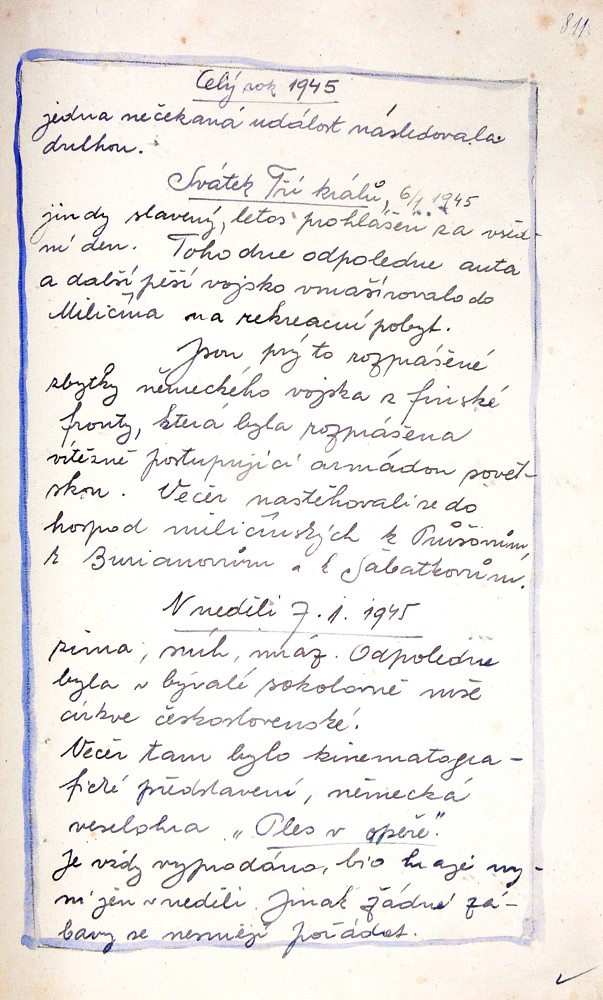 811
Celý rok 1945
jedna nečekaná událost následovala
druhou.
Svátek Tří králů, 6/1 1945
jindy slavený, letos prohlášen za všed-
ní den. Toho dne odpoledne auta
a další pěší vojsko vmašírovalo do
Miličína na rekreační pobyt.
Jsou prý to rozprášené
zbytky německého vojska z finské
fronty, která byla rozprášena
vítězně postupující armádou sovět-
skou. Večer nastěhovali se do
hospod miličínských k Průšovům,
k Burianovům a k Sábatkovům.
V neděli 7.1.1945
zima, sníh, mráz. Odpoledne
byla v bývalé sokolovně mše
církve československé.
Večer tam bylo kinematogra-
fické představení, německá
veselohra „Ples v opeře".
Je vždy vyprodáno, bio hraje ny-
ní jen v neděli. Jinak žádné zá-
bavy se nesmějí pořádat.